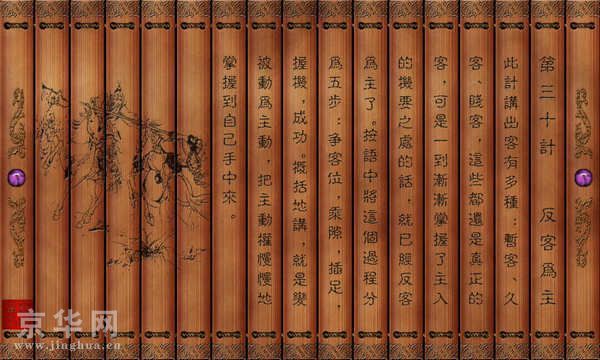 第三十計　反客為主
此計講出客有多種：暫客、久
客、賤客，這些都還是真正的
客，可是一到漸漸掌握了主人
的機要之處的話，就已經反客
為主了。按語中將這個過程分
為五步：爭客位，乘隙，插足，
握機，成功。概括地講，就是變
被動為主動，把主動權慢慢地
掌握到自己手中來。
京华网
www.jinghua.cn